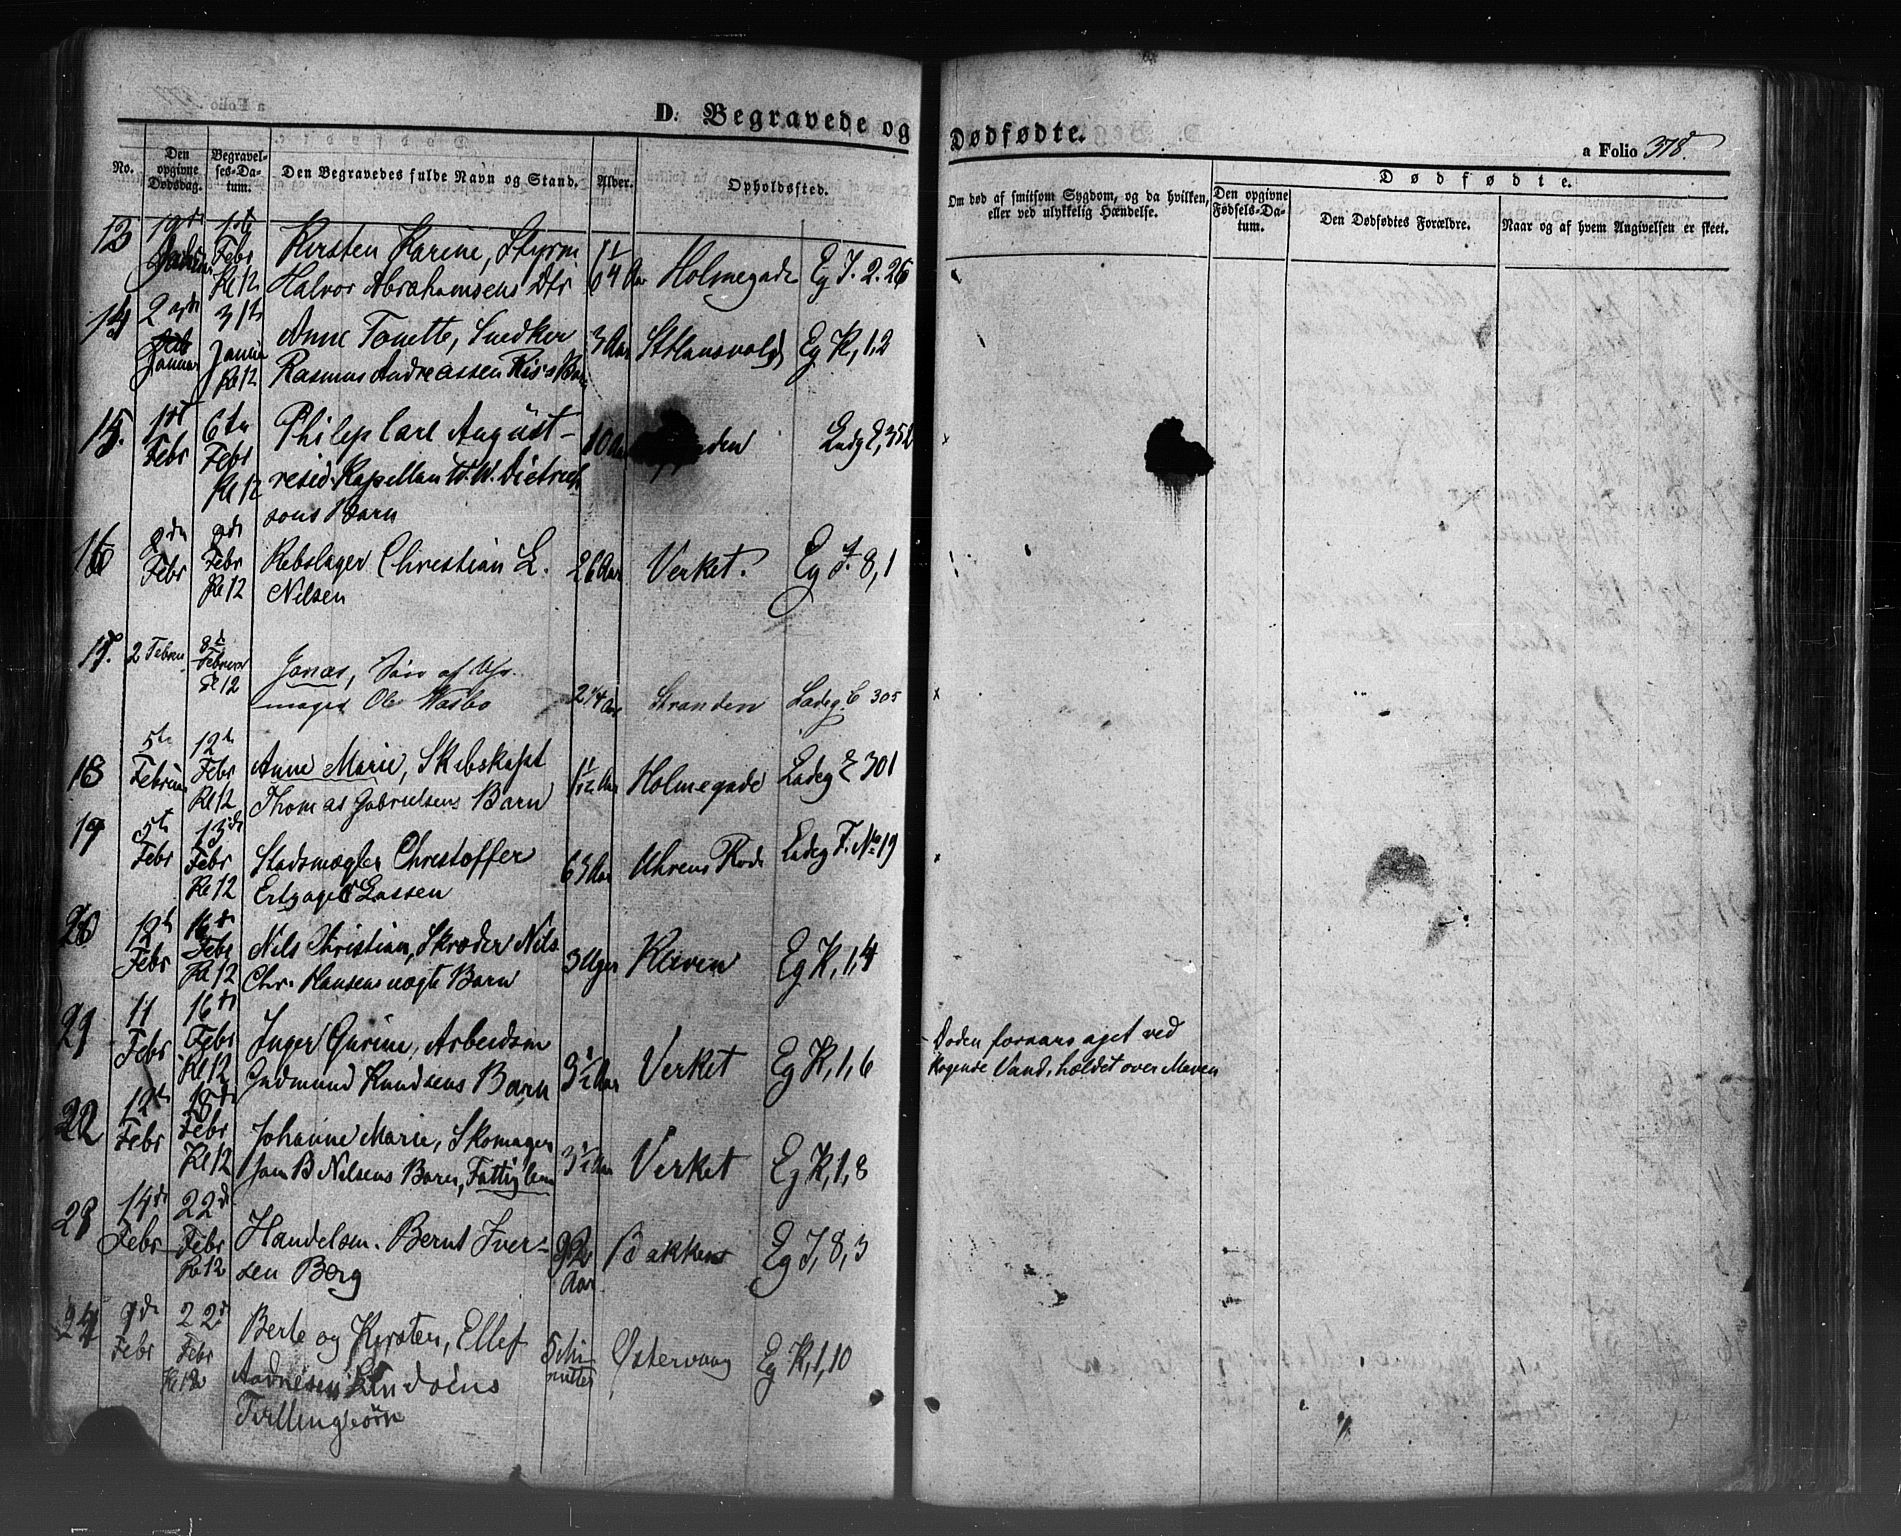 D. Begravede og Dødfødte.
a Folio 378.
No.
Den opgivne Dødsdag.
Begravelses-Datum.
Den Begravedes fulde Navn og Stand.
Alder.
Opholdssted.
Om død af smitsom Sygdom, og da hvilken, eller ved ulykkelig Hændelse.
Dødfødte.
Den opgivne Fødsels-Datum.
Den Dødfødtes Forældre.
Naar og af hvem Angivelsen er skeet.
13 1ste Febr Kl 12 Kirsten Karine, Styrm Halvor Abrahamsens Dtr Holmegade Eg J. 2. 26
14 Januar 31te Januar Kl 12 Anne Tonette, Snedker Rasmus Andreassen Riis's Barn 3 Aar St Hansvold Eg K, 1,2
15. 1st Febr 6te Febr Kl 12 Philip Carl August residr. Kapellan W. W. Dietrichsons Barn 10 Aar Ladg E, 352
16 2de Febr 9de Febr Kl 12 Rebslager Christian L. Nilsen 26 Aar Verket. Eg J. 8, 1
17. 2 Februar 8de Februar Kl 12 Jonas, Søn af Uhrmager Ole Wasbø 2 1/4 Aar Stranden Ladeg. C 305
18 5te Februar 12te Febr Kl 12 Anne Marie, Skibskapt Thomas Gabrielsens Barn 1 1/12 Aar Holmegade Ladeg E 301
19 5te Febr 13de Febr Kl 12 Stadsmægler Christoffer Lassen 63 Aar Uhrens Rode Ladeg F. No 19
20 12te Febr 16de Febr Kl 12 Nils Christian, Skræder Nils Chr. Hansens uægte Barn 3 Uger Kleven Eg K, 1,4
21 11 Febr 16de Febr Kl 12 Inger Gurine, Arbeidsm Gudmund Knudsens Barn 3 1/2 Aar Verket Eg K, 1, 6 Døden foraarsaget ved kogende Vand, holdet over Maven
22 12te Febr 18de Febr Kl 12 Johanne Marie, Skomager Jom B Nilsens Barn, Fattiglem 3 1/2 Aar Verket Eg K, 1, 8
23 14de Febr 22de Febr Kl 12 Handelsm. Bernt Iversen Berg 92 Aar Bakken Eg J, 8, 3
24 9de Febr 22de Febr Kl 12 Berte og Kirsten, Ellef Tvillingbørn 5 Minutter Østervaag Eg K, 1, 10